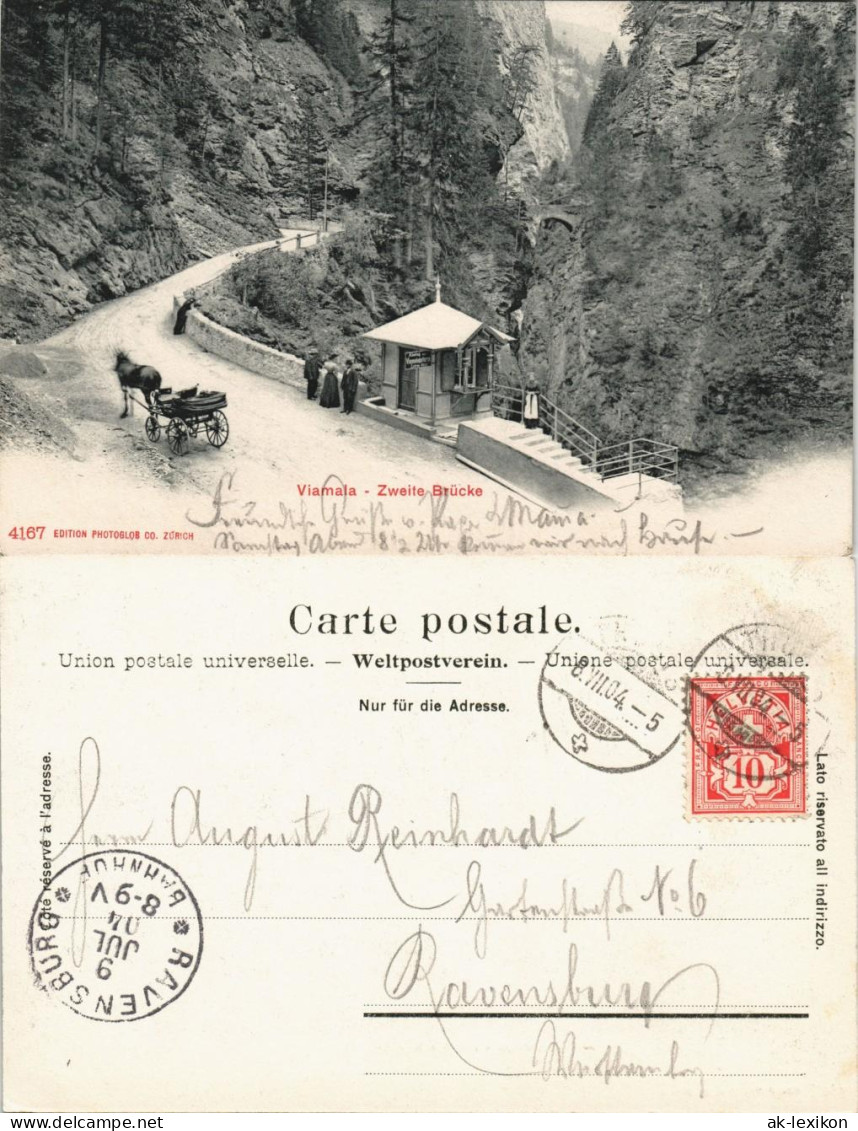 Viamala - Zweite Brücke
4167 EDITION PHOTOGLOB CO. ZÜRICH
Freundliche Grüße v. Papa & Mama.
Samstag Abend 8½ Uhr kommen wir nach Hause.
Carte postale.
Union postale universelle. — Weltpostverein. — Unione postale universale.
Nur für die Adresse.
Côté réservé à l'adresse.
Lato riservato all indirizzo.
8.VII.04.–5
HELVETIA
10
Herrn August Reinhardt
Gartenstraße No. 6
Ravensburg
Württemberg
RAVENSBURG
BAHNHOF
9
JUL
04
8-9V
delcampe.net
ak-lexikon